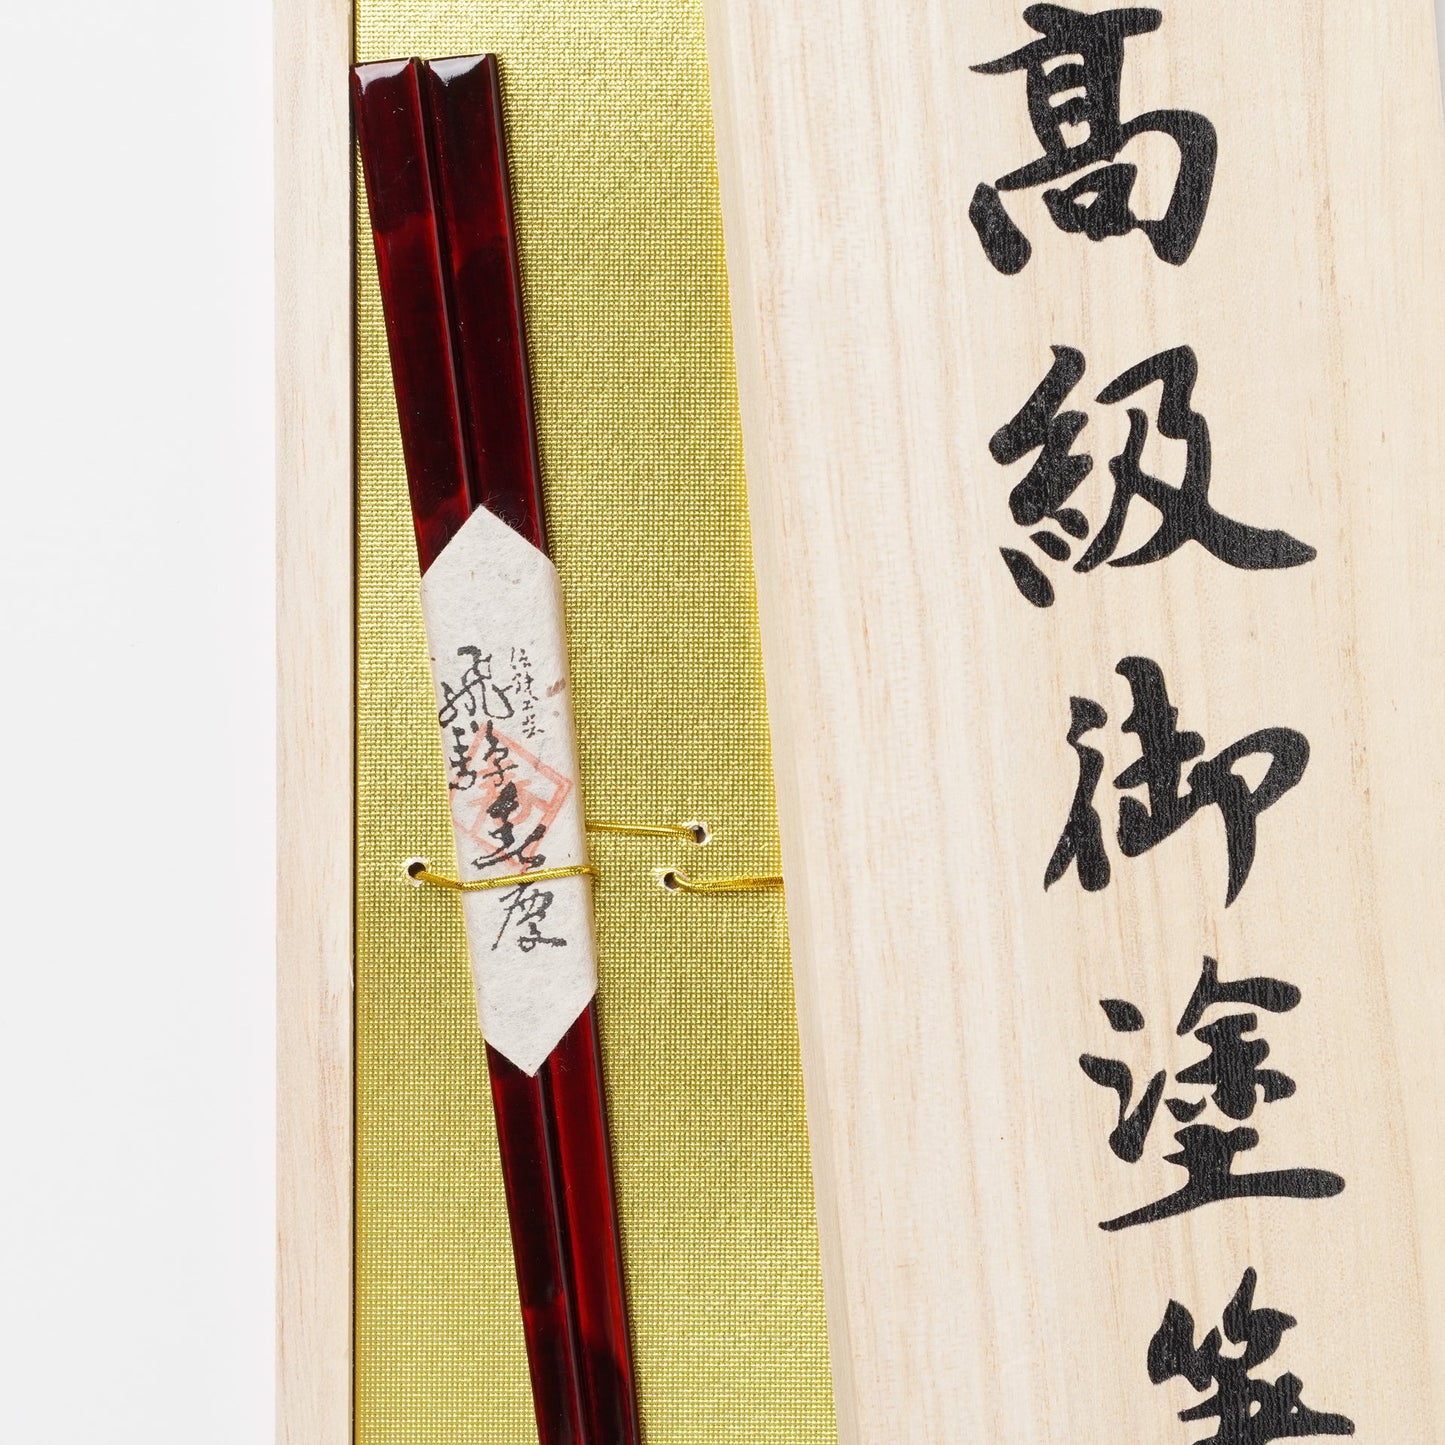 高級御塗箸
伝統工芸
飛騨春慶